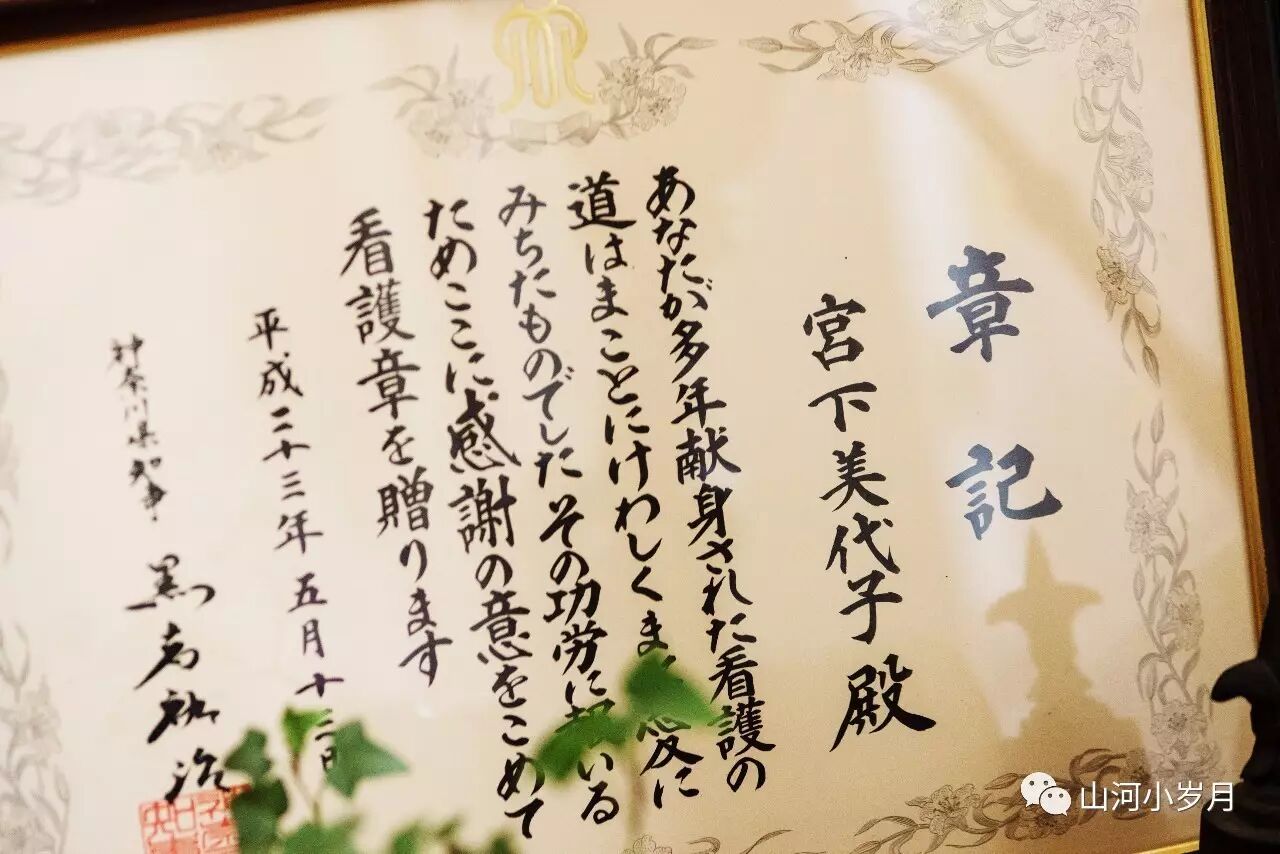 章記
宮下美代子殿
あなたが多年献身された看護の
道はまことにけわしくま 愛に
みちたものでした その功労に いる
ためここに感謝の意をこめて
看護章を贈ります
平成二十三年五月十二日
神奈川県知事 黒岩祐治
山河小岁月